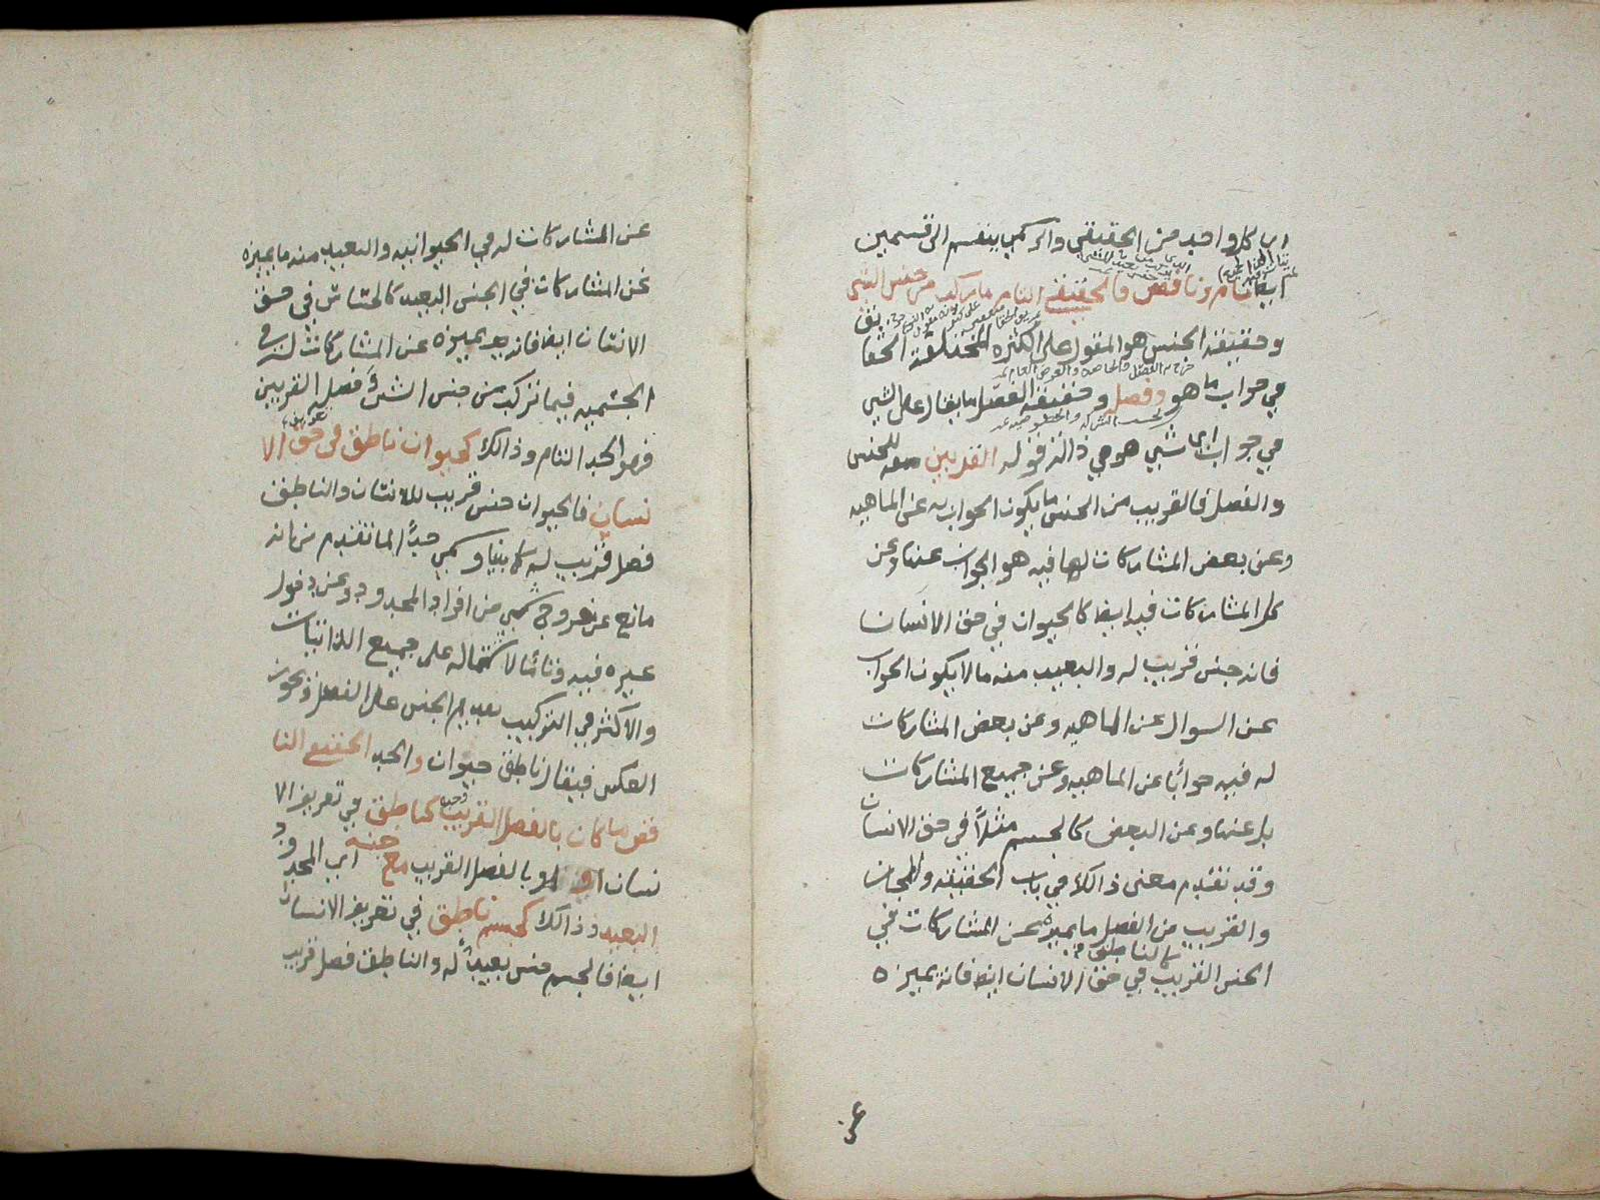 اي كل واحد من الحقيقي والرسمي ينقسم الى قسمين
ايضا تام وناقص فالحقيقي التام ما ركب من جنس الشي
وحقيقة الجنس هو المقول على الكثرة المختلفة الحقايق
خرج به الفصل والخاصة والعرض العام
في جواب ما هو وفصل وحقيقة الفصل ما يقال على الشي
في جواب اي شي هو في ذاته قوله القريبين صفه للجنس
والفصل فالقريب من الجنس ما يكون الجواب به عن الماهيه
وعن بعض المشاركات لها فيه هو الجواب عنها وعن
كل المشاركات فيه ايضا كالحيوان في حق الانسان
فانه جنس قريب له والبعيد منه ما لا يكون الجواب
عن السوال عن الماهيه وعن بعض المشاركات
له فيه جوابا عن الماهيه وعن جميع المشاركات
بل عنها وعن البعض كالجسم مثلا في حق الانسان
وقد تقدم معنى ذالك في باب الحقيقه والمجاز
والقريب من الفصل ما يميزه عن المشاركات في
كالناطق
الجنس القريب في حق الانسان ايضا فانه يميزه
عن
عن المشاركات له في الحيوانيه والبعيد منه ما يميزه
عن المشاركات في الجنس البعيد كالحساس في حق
الانسان ايضا فانه يميزه عن المشاركات له في
الجسميه فيما تركب من جنس الشي وفصله القريبين
فهو الحد التام وذالك كحيوان ناطق في حق الا
نسان فالحيوان جنس قريب للانسان والناطق
فصل قريب له كما بينا وسمي حدا لما تقدم من انه
مانع عن خروج شي من افراد المحدود وعن دخول
غيره فيه وتاما لاشتماله على جميع الذاتيات
والاكثر في التركيب تقديم الجنس على الفصل ويجوز
العكس فيقال ناطق حيوان والحد الحقيقي النا
قص ما كان بالفصل القريب وحده كناطق في تعريف الا
نسان او بالفصل القريب مع جنسه اي المحدود
البعيد وذالك كجسم ناطق في تعريف الانسان
ايضا فالجسم جنس بعيد له والناطق فصل قريب